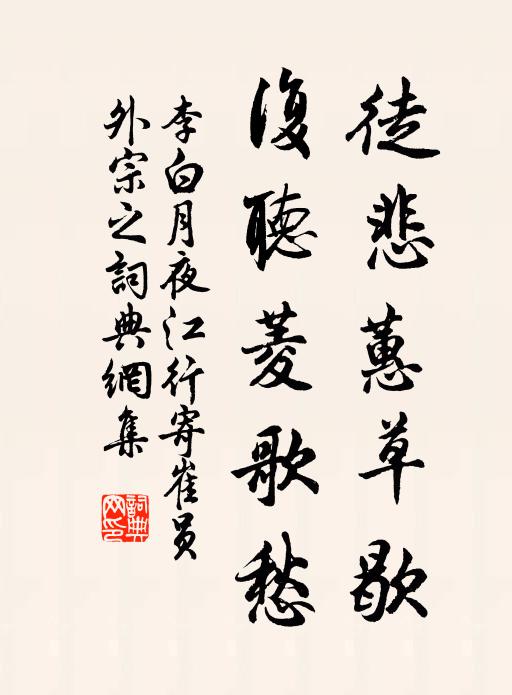 徒悲蕙草歇
復聽菱歌愁
李白月夜江行寄崔員
外宗之詞典網集
詞典網印